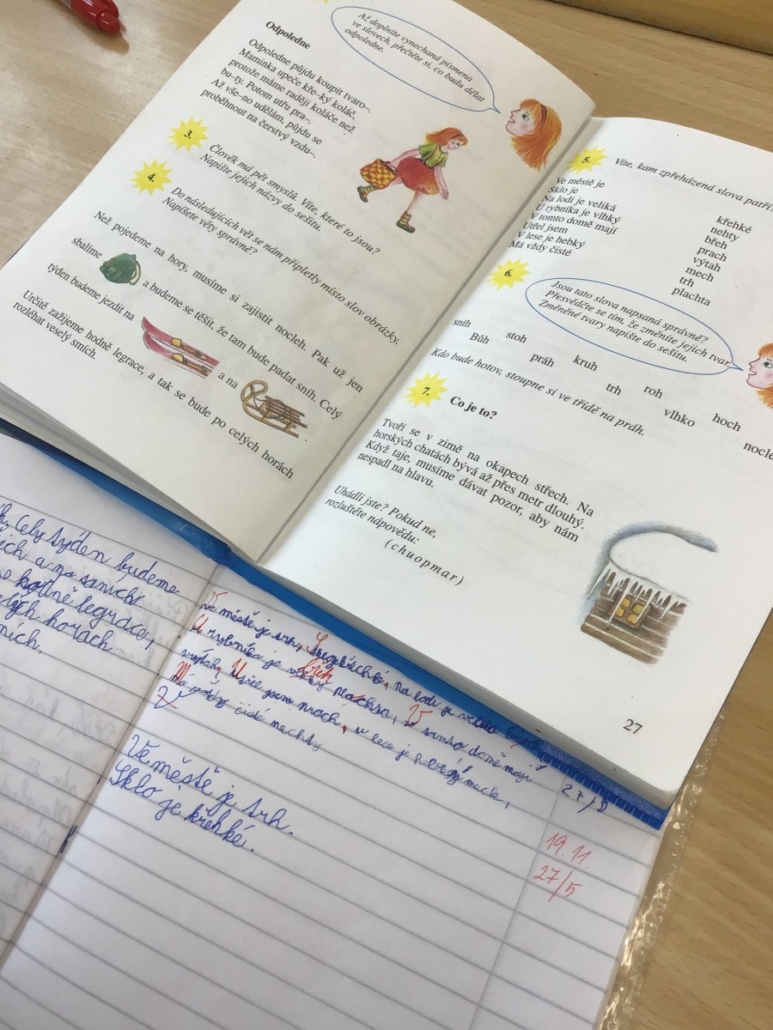 Až doplníte vynechaná písmena
ve slovech, přečtěte si, co budu dělat
odpoledne.
Odpoledne
Odpoledne půjdu koupit tvaro–.
Maminka upeče kře–ký koláč,
protože máme raději koláče než
bu–ty. Potom utřu pra–.
Až vše–no udělám, půjdu se
proběhnout na čerstvý vzdu–.
3.
Člověk má pět smyslů. Víte, které to jsou?
Napište jejich názvy do sešitu.
4.
Do následujících vět se nám připletly místo slov obrázky.
Napíšete věty správně?
Než pojedeme na hory, musíme si zajistit nocleh. Pak už jen
sbalíme
a budeme se těšit, že tam bude padat sníh. Celý
týden budeme jezdit na
a na
Určitě zažijeme hodně legrace, a tak se bude po celých horách
rozléhat veselý smích.
5.
Víte, kam zpřeházená slova patří
Ve městě je
Sklo je
Na lodi je veliká
U rybníka je vlhký
V tomto domě mají
Utřel jsem
V lese je hebký
Má vždy čisté
křehké
nehty
břeh
prach
výtah
mech
trh
plachta
6.
Jsou tato slova napsaná správně?
Přesvědčte se tím, že změníte jejich tvar.
Změněné tvary napište do sešitu.
sníh stoh kruh roh hoch
Bůh práh trh vlhko nocle
Kdo bude hotov, stoupne si ve třídě na práh.
7.
Co je to?
Tvoří se v zimě na okapech střech. Na
horských chatách bývá až přes metr dlouhý.
Když taje, musíme dávat pozor, aby nám
nespadl na hlavu.
Uhádli jste? Pokud ne,
rozluštěte nápovědu:
(chuopmar)
27
Celý týden budeme
ich a na saních
hodně legrace,
horách
Ve městě je trh, na lodi je
U rybníka je břeh
výtah, jsem prach, v lese je mech,
Má vždy čisté nechty
V
Ve městě je trh.
Sklo je křehké.
19.11
27/5